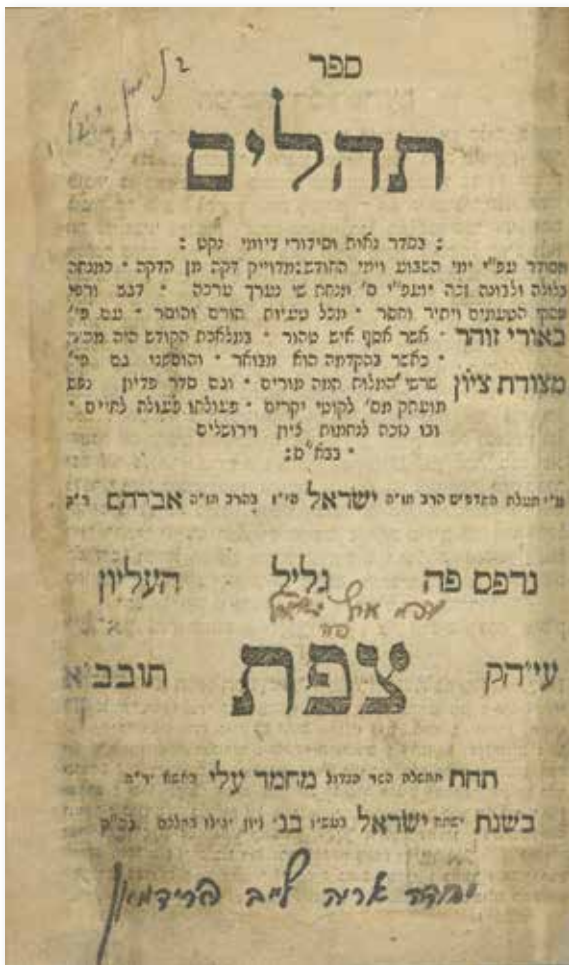 ספר
תהלים
: בסדר נאות וסידורי דיומי נקט :
מסודר עפ"י ימי השבוע וימי החודש: מדוייק דקה מן הדקה * כמנחה
בלולה ולבונה זכה * ועפ"י ס' מנחת שי נערך ערכה *
הטעמים ויתיר וחסר * מכל טעיות הורם והוסר * עם פי'
באורי זוהר * אשר אסף איש טהור * במלאכת הקודש היה
* כאשר בהקדמה הוא מבואר * והוספנו גם פי'
מצודת ציון שרשי המלות המה מורים * וגם סדר פדיון נפש
מועתק מס' לקוטי יקרים * פעולתו פעולה לחיים *
ובו נזכה לנחמות ציון וירושלים
* בבא"ם:
הרב מו"ה ישראל ני"ו בהרב מו"ה אברהם
נדפס פה גליל העליון
עי"הק צפת תובב"א
תחת ממשלת השר הגדול מחמד עלי באשא יר"ה
בשנת ישמח ישראל בעשיו בני ציון יגילו במלכם
יהודה אריה לייב פרידמאן